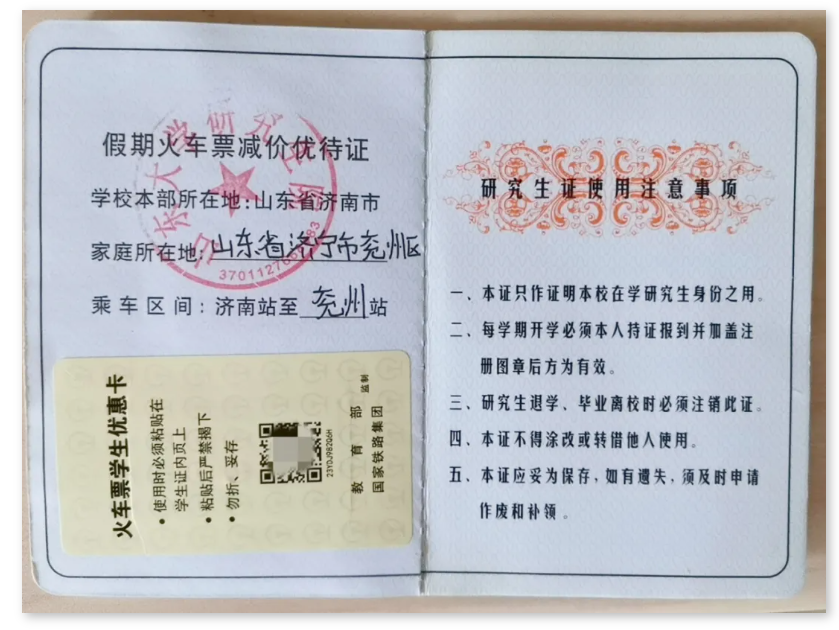 假期火车票减价优待证
学校本部所在地:山东省济南市
家庭所在地:山东省济宁市兖州区
乘车区间:济南站至兖州站
火车票学生优惠卡
• 使用时必须粘贴在
学生证内页上
• 粘贴后严禁揭下
• 勿折、妥存
教育部
国家铁路集团
监制
研究生证使用注意事项
一、本证只作证明本校在学研究生身份之用。
二、每学期开学必须本人持证报到并加盖注
册图章后方为有效。
三、研究生退学、毕业离校时必须注销此证。
四、本证不得涂改或转借他人使用。
五、本证应妥为保存,如有遗失,须及时申请
作废和补领。